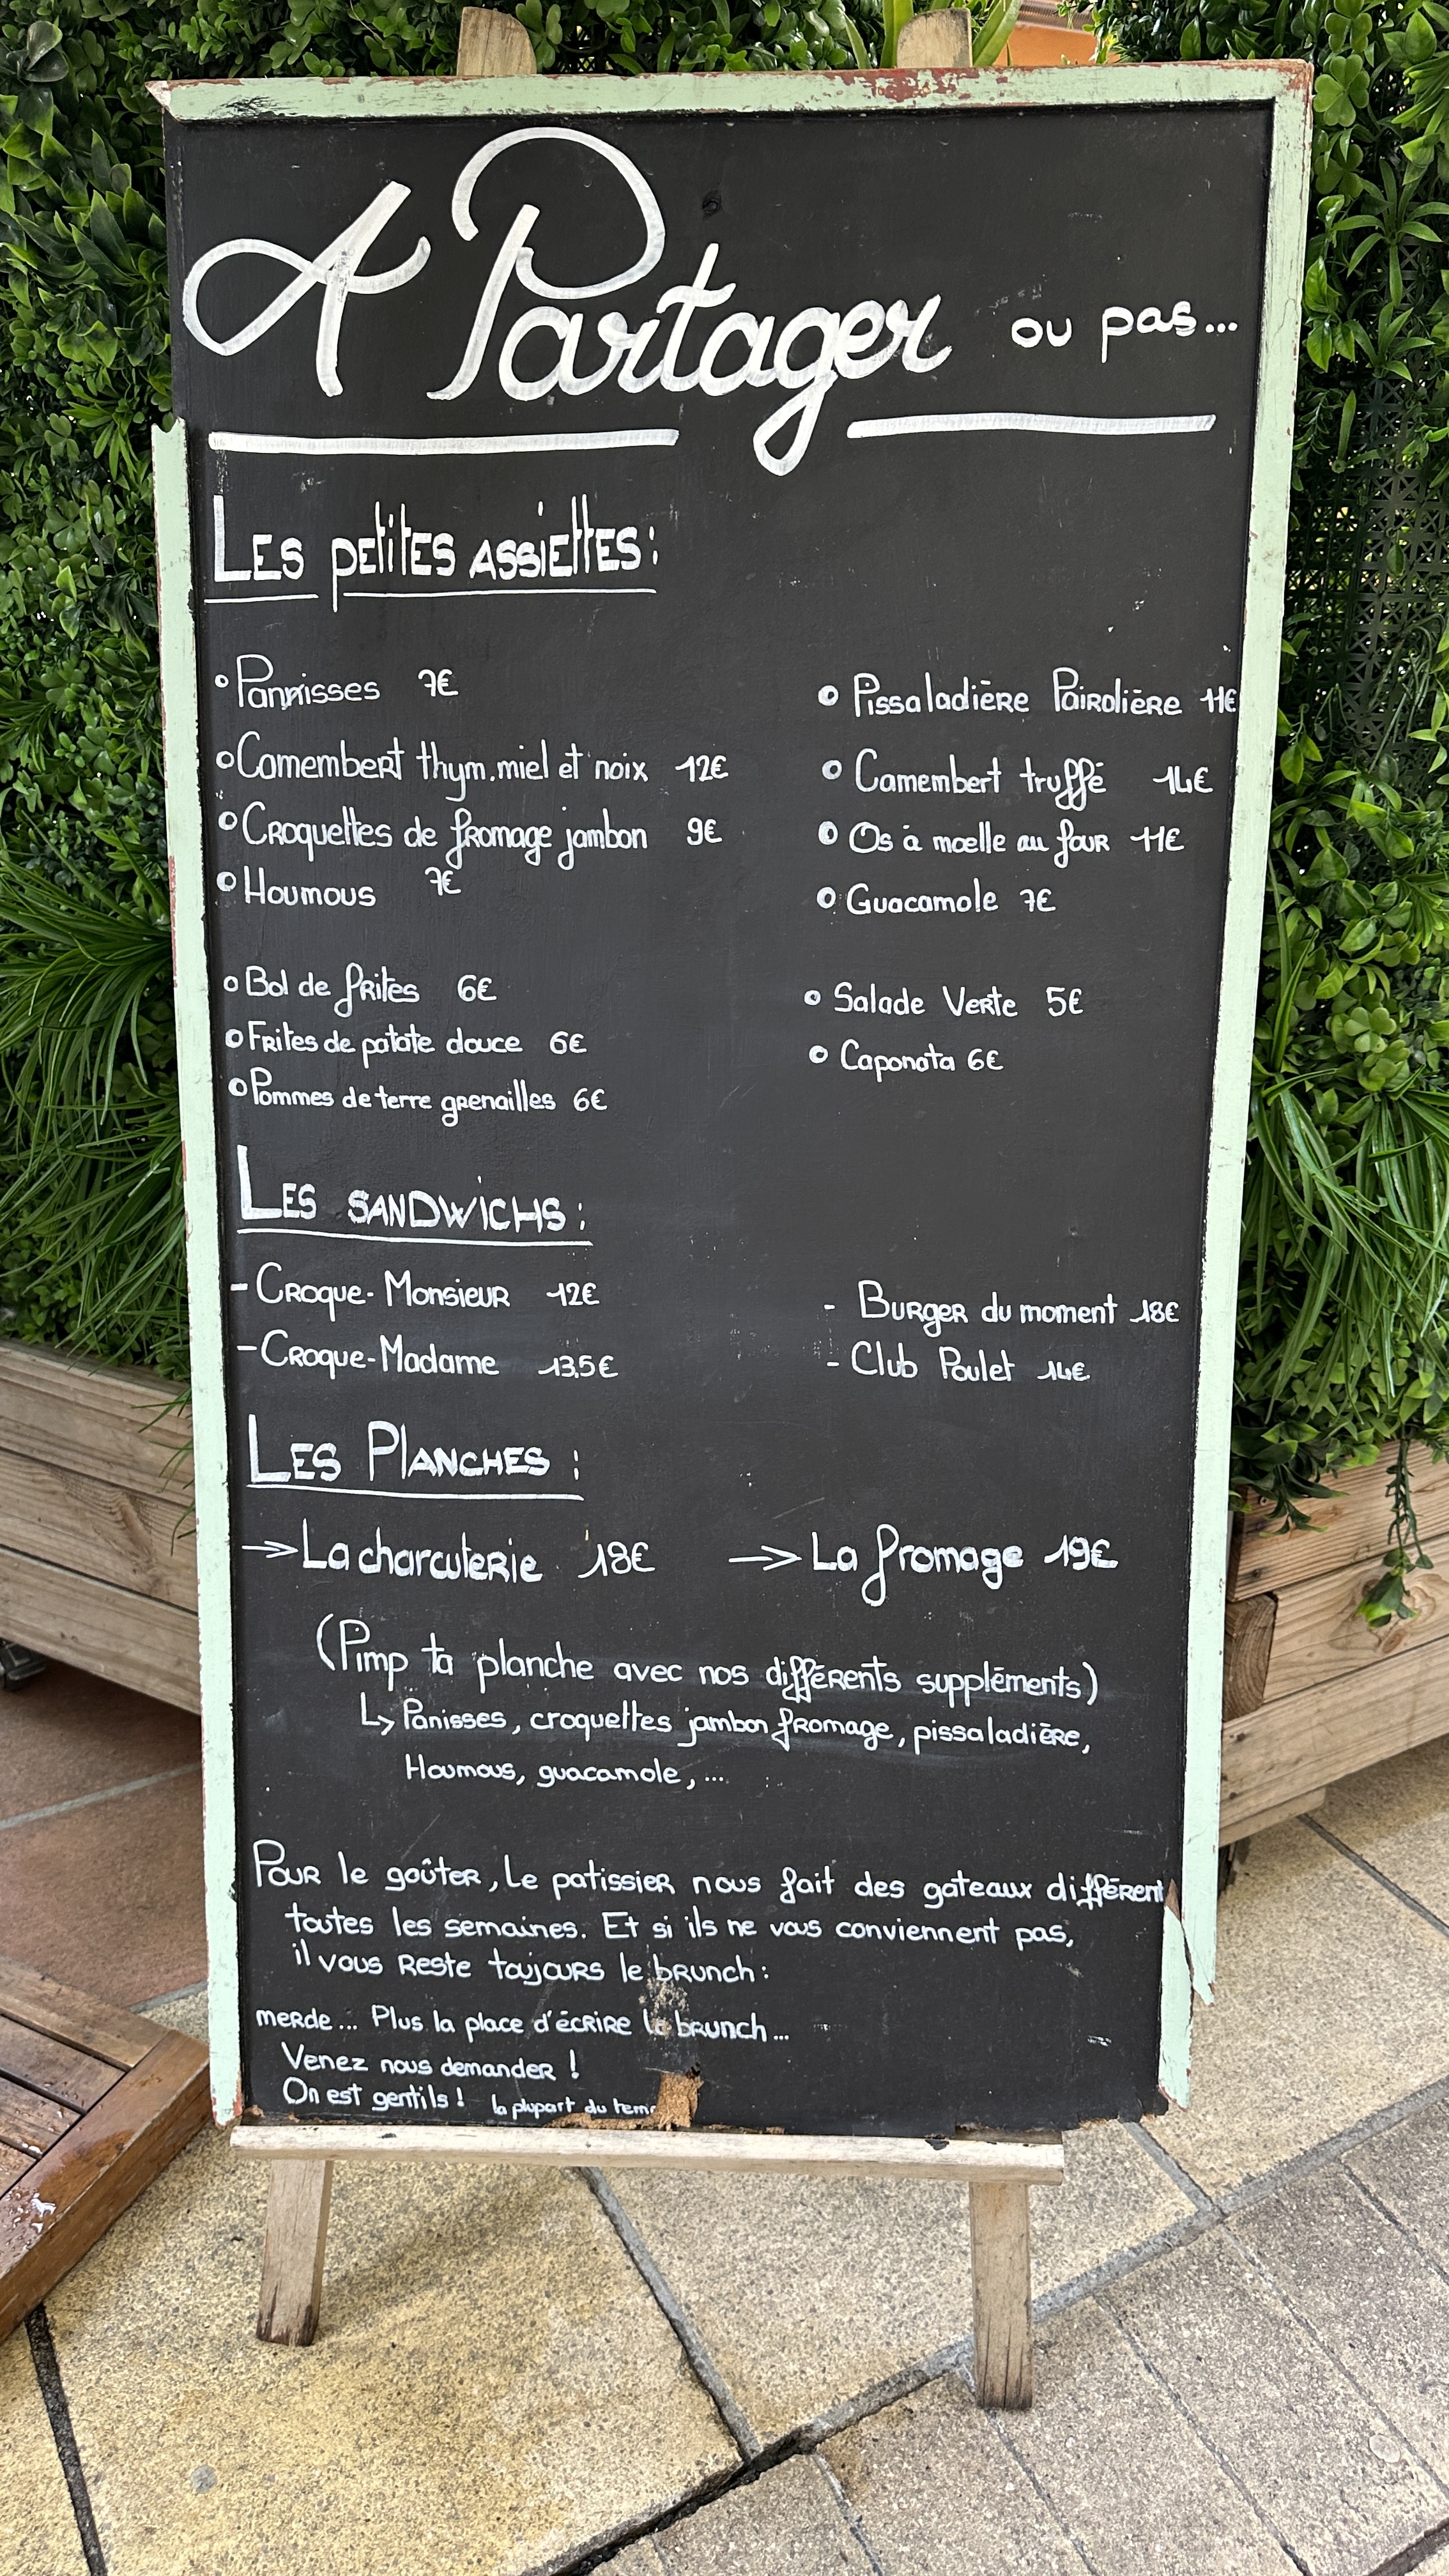 A Partager ou pas...
LES PETITES ASSIETTES:
Pannisses 7€
Pissaladière Pairolière 11€
Camembert thym.miel et noix 12€
Camembert truffé 14€
Croquettes de fromage jambon 9€
Os à moelle au four 11€
Houmous 7€
Guacamole 7€
Bol de frites 6€
Salade Verte 5€
Frites de patate douce 6€
Caponata 6€
Pommes de terre grenailles 6€
LES SANDWICHS:
- Croque-Monsieur 12€
- Burger du moment 18€
- Croque-Madame 13,5€
- Club Poulet 14€
LES PLANCHES:
→ La charcuterie 18€ → La fromage 19€
(Pimp ta planche avec nos différents suppléments)
↳ Panisses, croquettes jambon fromage, pissaladière,
Houmous, guacamole, ...
Pour le goûter, Le patissier nous fait des gateaux différent
toutes les semaines. Et si ils ne vous conviennent pas,
il vous reste toujours le brunch:
merde... Plus la place d'écrire le brunch...
Venez nous demander !
On est gentils ! la plupart du tem